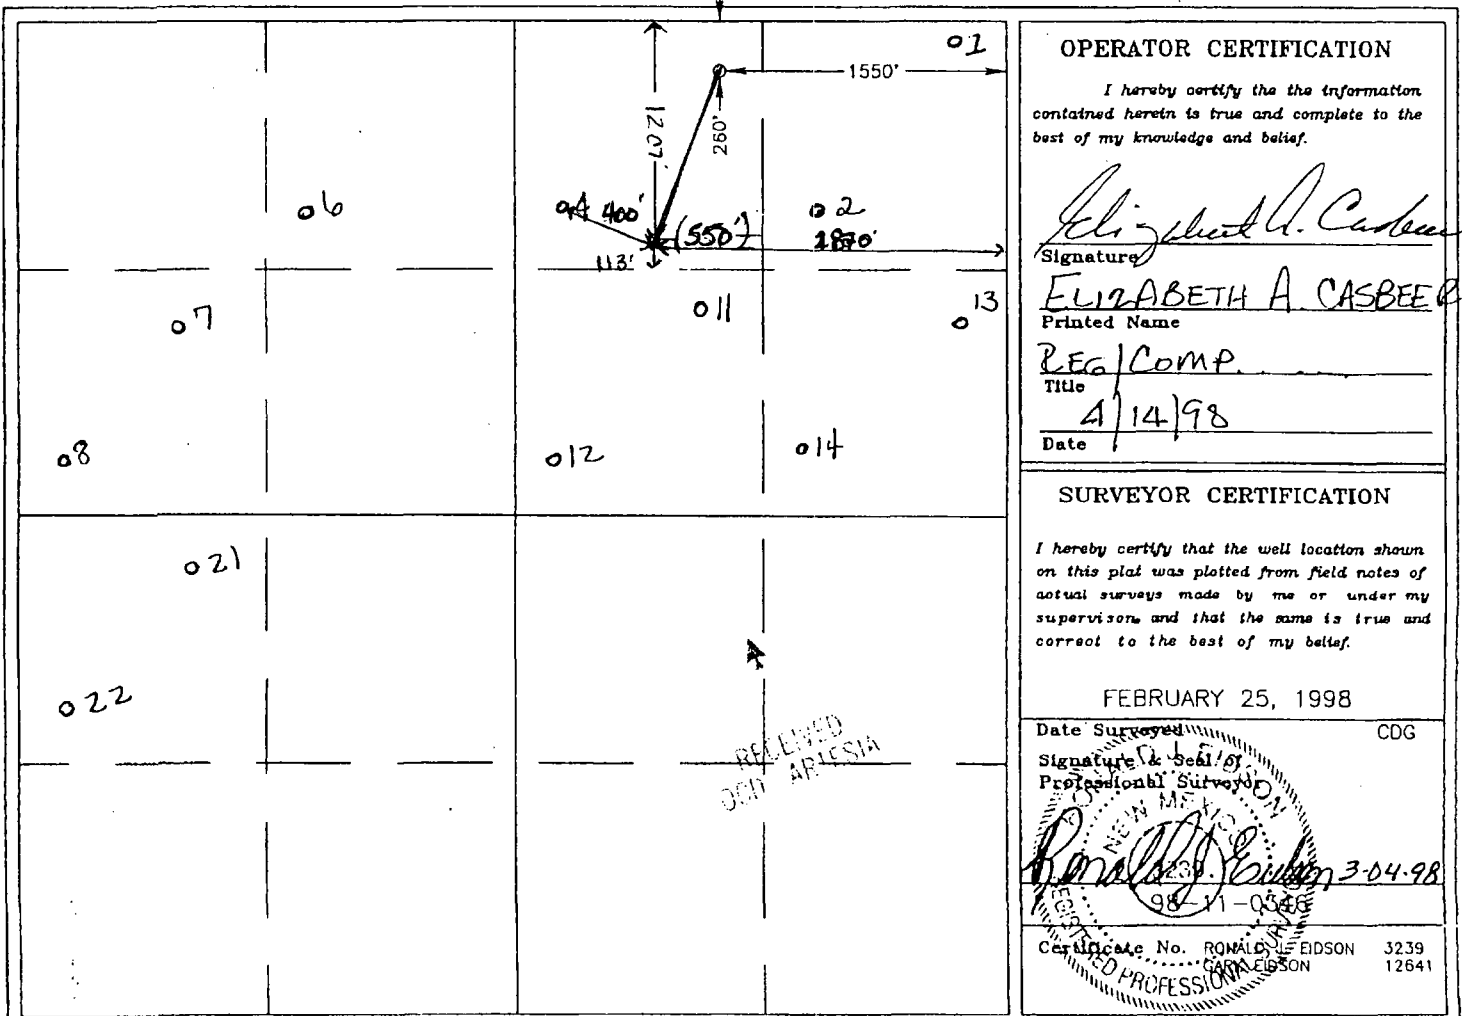 o1
1550'
1207'
260'
o6
o4 400'
(550')
o2
1870'
113'
o7
o11
o13
o8
o12
o14
o21
o22
RECEIVED
OCD ARTESIA
OPERATOR CERTIFICATION
I hereby certify the the information
contained herein is true and complete to the
best of my knowledge and belief.
Elizabeth A. Casbeer
Signature
ELIZABETH A. CASBEER
Printed Name
REG/COMP.
Title
4/14/98
Date
SURVEYOR CERTIFICATION
I hereby certify that the well location shown
on this plat was plotted from field notes of
actual surveys made by me or under my
supervison, and that the same is true and
correct to the best of my belief.
FEBRUARY 25, 1998
Date Surveyed CDG
Signature & Seal of
Professional Surveyor
RONALD J. EIDSON
NEW MEXICO
3239
REGISTERED PROFESSIONAL SURVEYOR
Ronald J. Eidson 3-04-98
98-11-0346
Certificate No. RONALD J. EIDSON 3239
GARY EIDSON 12641